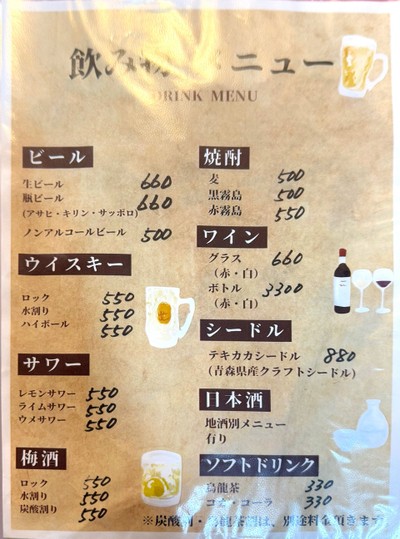 飲み物メニュー
DRINK MENU
ビール
生ビール 660
瓶ビール 660
(アサヒ・キリン・サッポロ)
ノンアルコールビール 500
ウイスキー
ロック 550
水割り 550
ハイボール 550
サワー
レモンサワー 550
ライムサワー 550
ウメサワー 550
梅酒
ロック 550
水割り 550
炭酸割り 550
焼酎
麦 500
黒霧島 500
赤霧島 550
ワイン
グラス 660
(赤・白)
ボトル 3300
(赤・白)
シードル
テキカカシードル 880
(青森県産クラフトシードル)
日本酒
地酒別メニュー
有り
ソフトドリンク
烏龍茶 330
コカ・コーラ 330
※炭酸割・烏龍茶割は、別途料金頂きます